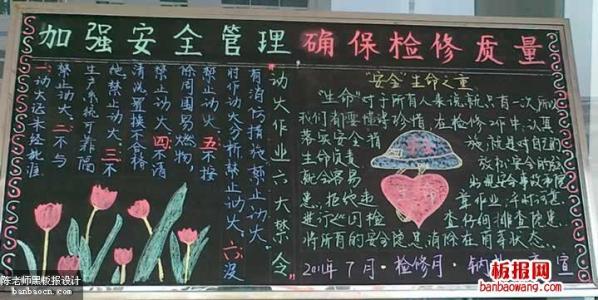 加强安全管理 确保检修质量
一.动火证未经批准
禁止动火.二.不与
生产系统可靠隔
绝禁止动火.三.不
清洗置换不合格
禁止动火.四.不清
除周围易燃物,
禁止动火.五.不按
时作动火分析禁止动火.六.没
有消防措施禁止动火.
动火作业六大禁令
"安全"生命之重
"生命"对于所有人来说就只有一次,所以
我们都要懂得珍惜.在检修工作中,认真
落实安全措施,就是对自己的
生命负责 放松安全
容易出现安全事故和隐
患.拒绝违章作业,
进行巡回检查仔细排查隐患.
将所有的安全隐患消除在萌芽状态.
2011年7月·检修月·钠 宣
陈老师黑板报设计
banbaocn.com
板报网
banbaowang.com